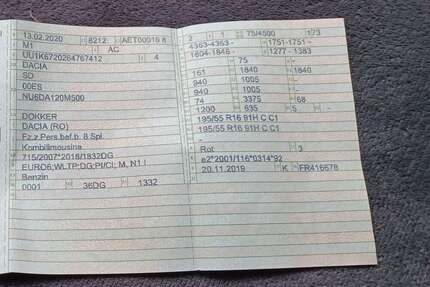 13.02.2020 8212 AET00019 8
M1 AC
UU1K6720264767412 4
DACIA
SD
00ES
NU6DA120M500
DOKKER
DACIA (RO)
Fz.z.Pers.bef.b. 8 Spl.
Kombilimousine
715/2007*2018/1832DG
EURO6;WLTP;DG;PI/CI; M, N1 I
Benzin
0001 36DG 1332
2 1 75/4500 173
4363-4363 - 1751-1751 -
1804-1846 - 1277 - 1383
- 75 -
161 1840 1840
940 1005 -
940 1005 -
74 3375 68
1200 635 5 -
195/55 R16 91H C C1
195/55 R16 91H C C1
-
Rot 3
e2*2001/116*0314*92
20.11.2019 K FR416678